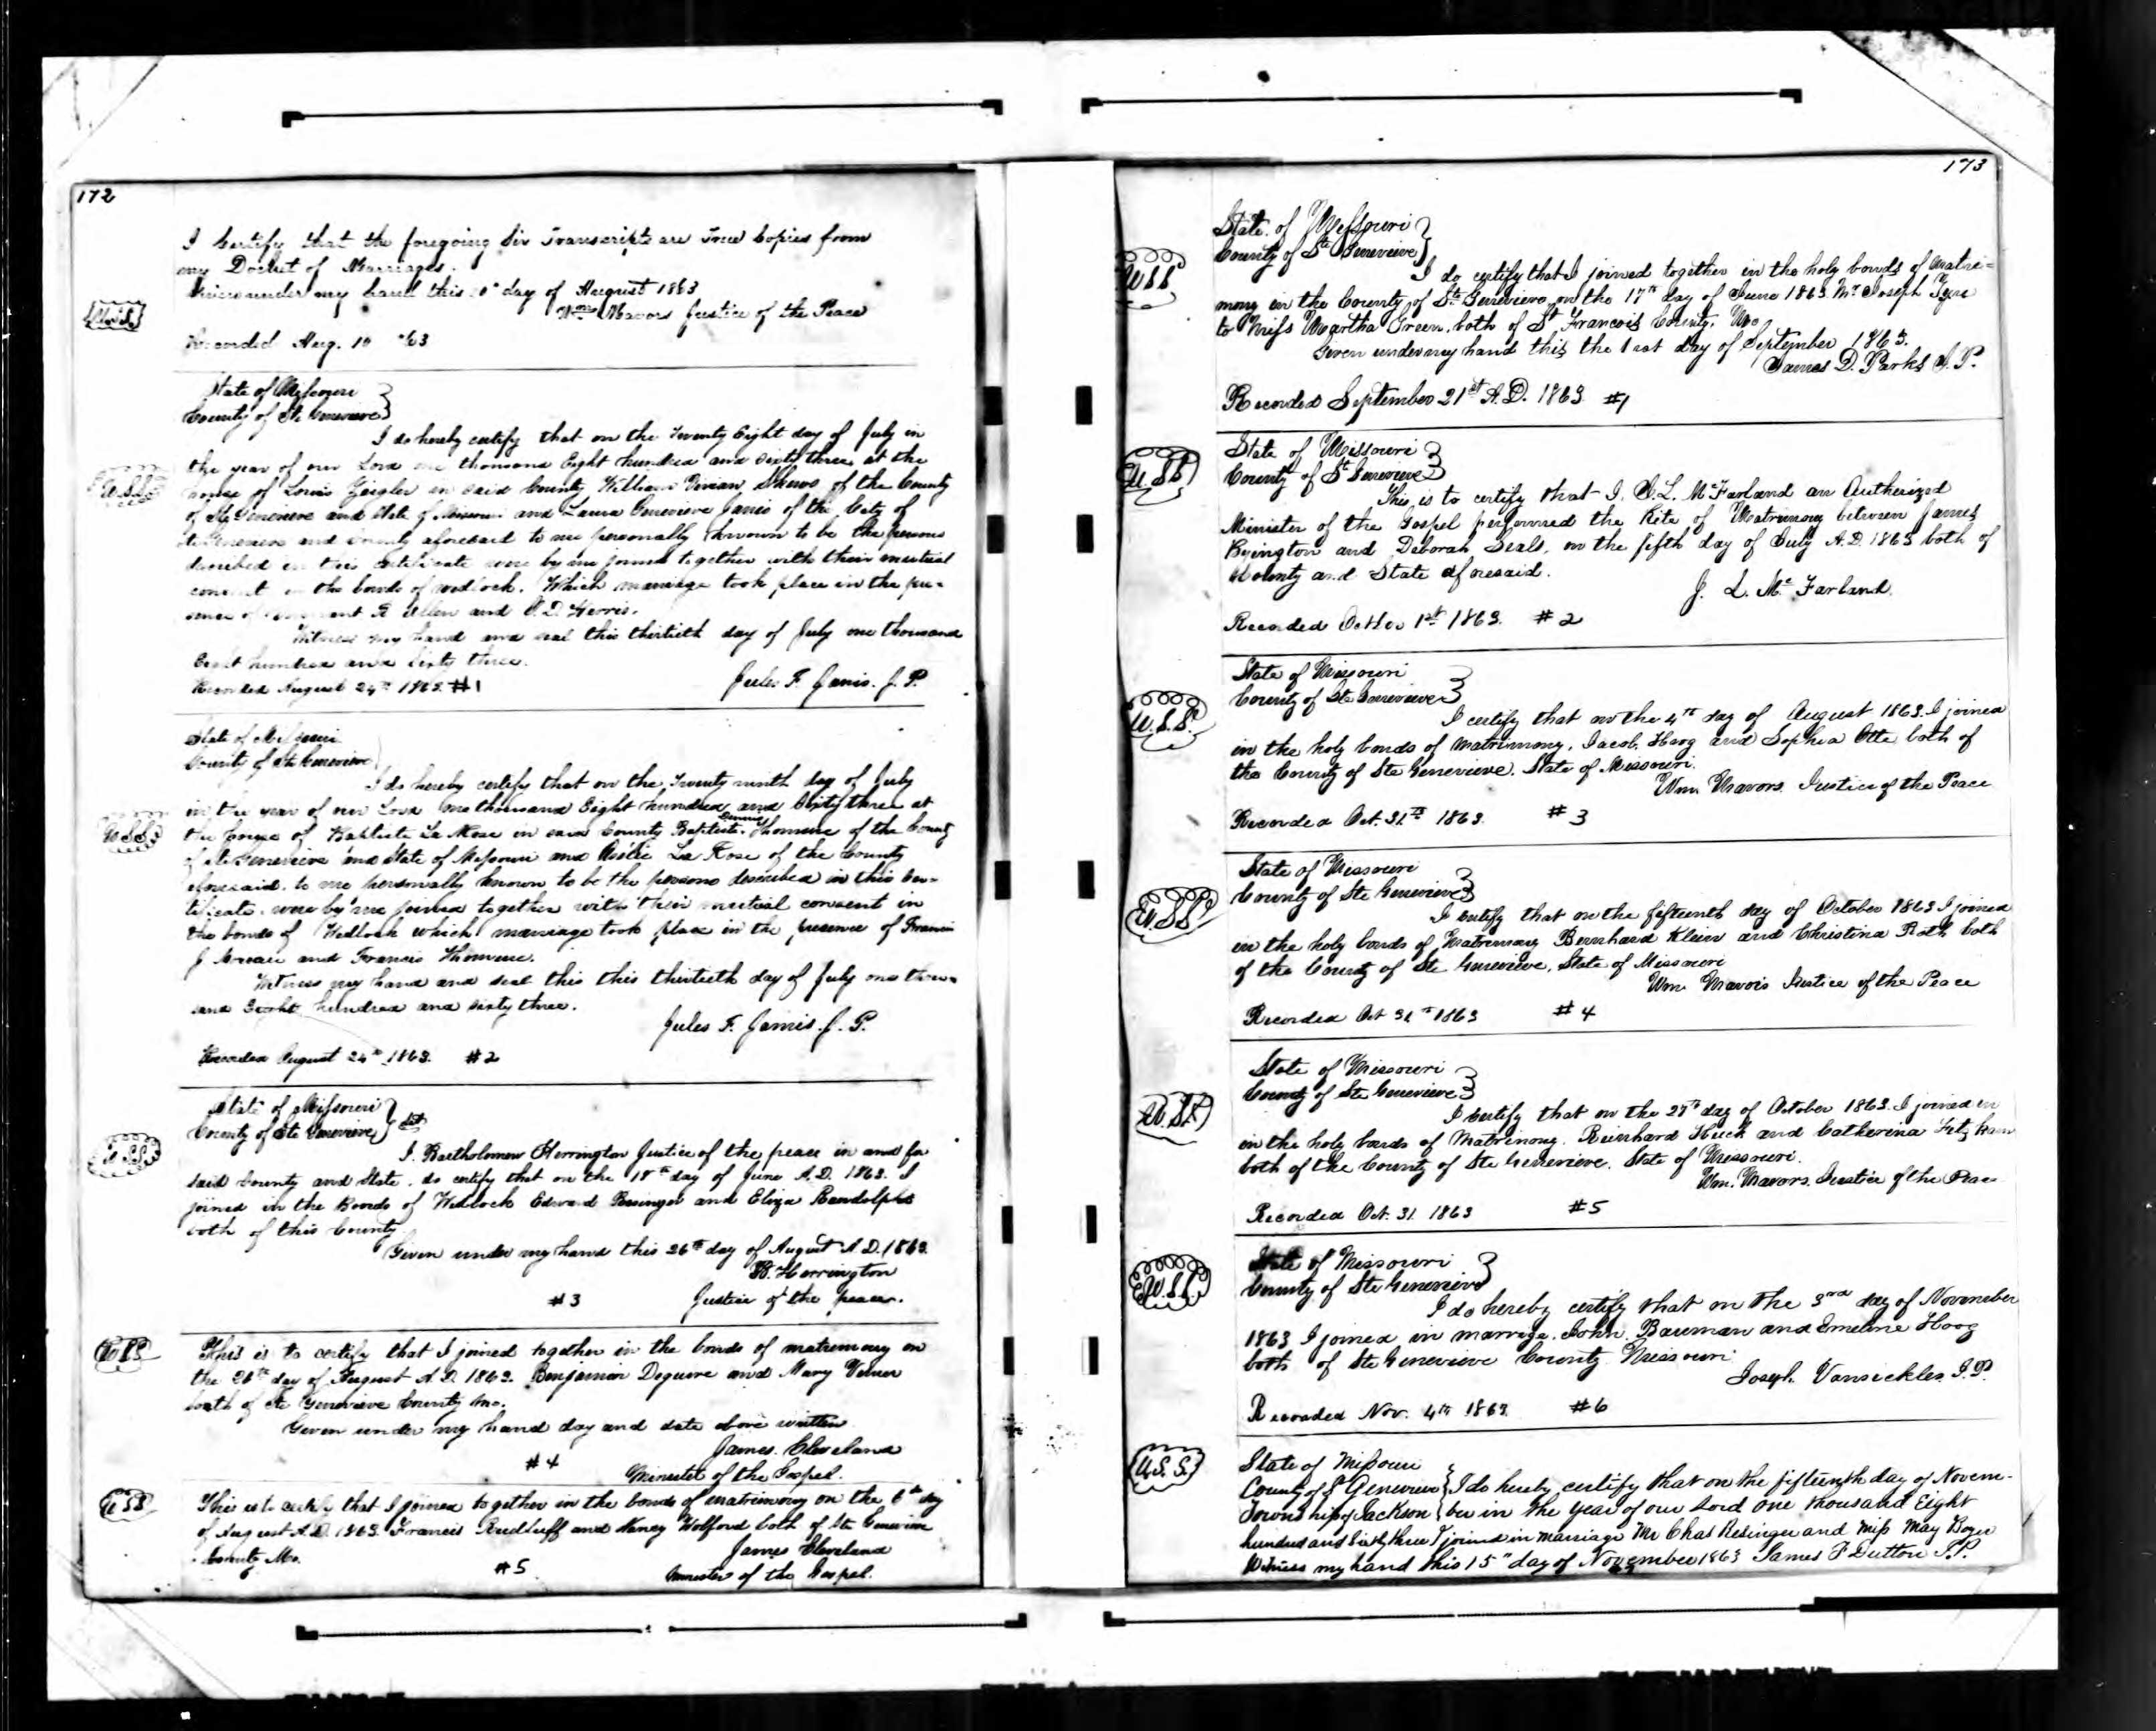 172
I Certify that the foregoing Six Transcripts are True Copies from
my Docket of Marriages.
Given under my hand this 10th day of August 1863
Wm. Mavors Justice of the Peace
Recorded Aug. 10 63
State of Missouri
County of Ste. Genevieve
I do hereby certify that on the Twenty Eight day of July in
the year of our Lord one thousand Eight hundred and Sixty three, at the
house of Louis Zeigler in said County William Vivian Shews of the County
of Ste Genevieve and State of Missouri and Laura Genevieve Janis of the City of
Ste Genevieve and County aforesaid to me personally known to be the persons
described in this certificate were by me joined together with their mutual
consent in the bonds of wedlock. Which marriage took place in the pre-
sence of R Allen and Herris.
Witness my hand and seal this thirtieth day of July one thousand
Eight hundred and Sixty three.
Jules F. Janis. J. P.
Recorded August 24th 1863. #1
State of Missouri
County of Ste Genevieve
I do hereby certify that on the Twenty ninth day of July
in the year of our Lord one thousand Eight hundred and Sixty three at
the house of Baptiste La Rose in said County Baptiste Thomure of the County
of Ste Genevieve and State of Missouri and La Rose of the County
aforesaid, to me personally known to be the persons described in this Cer-
tificate, were by me joined together with their mutual consent in
the bonds of Wedlock which marriage took place in the presence of Francis
J and Francis Thomure.
Witness my hand and seal this this thirtieth day of July one thou-
sand Eight hundred and sixty three.
Jules F. Janis. J. P.
Recorded August 24th 1863. #2
State of Missouri
County of Ste Genevieve
I, Bartholomew Herrington Justice of the peace in and for
said County and State, do certify that on the 18th day of June A.D. 1863. I
joined in the Bonds of Wedlock Edward and Eliza Randolph
both of this County
Given under my hand this 26th day of August A.D. 1863.
B. Herrington
#3 Justice of the peace.
This is to certify that I joined together in the bonds of matrimony on
the 26th day of August A.D. 1863. Benjamin Deguire and Mary
both of Ste Genevieve County Mo.
Given under my hand day and date above written
James Cleveland
#4 Minister of the Gospel.
This is to certify that I joined together in the bonds of matrimony on the 6th day
of August A.D. 1863. Francis Rudluff and Nancy Wolford both of Ste Genevieve
County Mo. James Cleveland
#5 Minister of the Gospel.
173
State of Missouri
County of Ste Genevieve
I do certify that I joined together in the holy bonds of matri=
mony in the County of Ste Genevieve on the 17th day of June 1863 Mr. Joseph
to Miss Martha Green, both of St Francois County, Mo
Given under my hand this the 1st day of September 1863.
James D. Parks J. P.
Recorded September 21st A.D. 1863 #1
State of Missouri
County of Ste Genevieve
This is to certify that I, J. L. McFarland an Authorized
Minister of the Gospel performed the Rite of Matrimony between James
Byington and Deborah Seals, on the fifth day of July A.D. 1863 both of
County and State aforesaid.
J. L. McFarland.
Recorded October 1st 1863. #2
State of Missouri
County of Ste Genevieve
I certify that on the 4th day of August 1863. I joined
in the holy bonds of matrimony, Jacob Hoog and Sophia Otte both of
the County of Ste Genevieve. State of Missouri.
Wm. Mavors. Justice of the Peace
Recorded Oct. 31st 1863. #3
State of Missouri
County of Ste Genevieve
I certify that on the fifteenth day of October 1863 I joined
in the holy bonds of Matrimony Bernhard Klein and Christina Roth both
of the County of Ste Genevieve, State of Missouri
Wm. Mavors Justice of the Peace
Recorded Oct 31st 1863 #4
State of Missouri
County of Ste Genevieve
I Certify that on the 27th day of October 1863. I joined in
in the holy bonds of Matrimony. Reinhard Huck and Catherina
both of the County of Ste Genevieve. State of Missouri.
Wm. Mavors. Justice of the Peace
Recorded Oct. 31. 1863 #5
State of Missouri
County of Ste Genevieve
I do hereby certify that on the 3rd day of November
1863 I joined in marriage. John Bauman and Emeline Hoog
both of Ste Genevieve County Missouri
Joseph Vansickles J.P.
Recorded Nov. 4th 1863. #6
State of Missouri
County of St Genevieve I do hereby certify that on the fifteenth day of Novem-
Township of Jackson ber in the year of our Lord one thousand Eight
hundred and sixty three I joined in marriage Mr Chas Resinger and Miss May Boyer
Witness my hand this 15" day of November 1863 James F Dutton J.P.